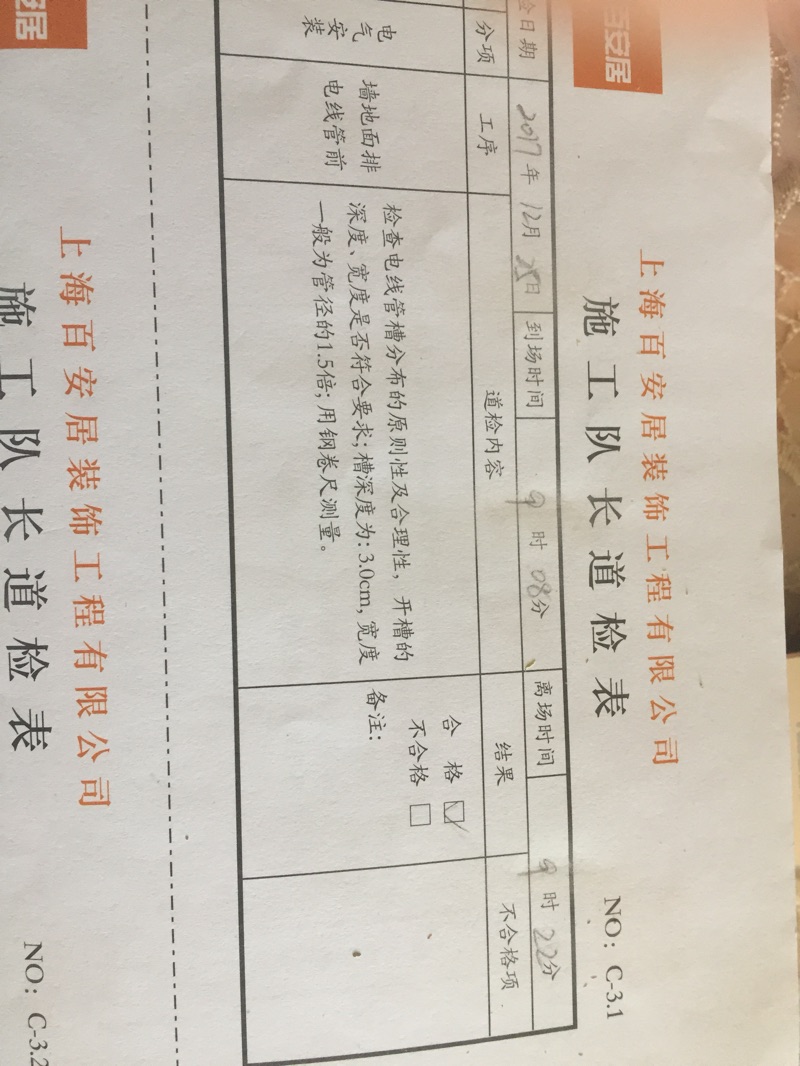 百安居
上海百安居装饰工程有限公司
施工队长道检表
NO: C-3.1
检日期 2017年12月25日 到场时间 9时08分 离场时间 9时22分
分项 工序 道检内容 结果 不合格项
电气安装
墙地面排
电线管前
检查电线管槽分布的原则性及合理性，开槽的
深度、宽度是否符合要求；槽深度为：3.0cm，宽度
一般为管径的1.5倍；用钢卷尺测量。
合 格 ☑
不合格 □
备注：
安居
上海百安居装饰工程有限公司
施工队长道检表
NO: C-3.2